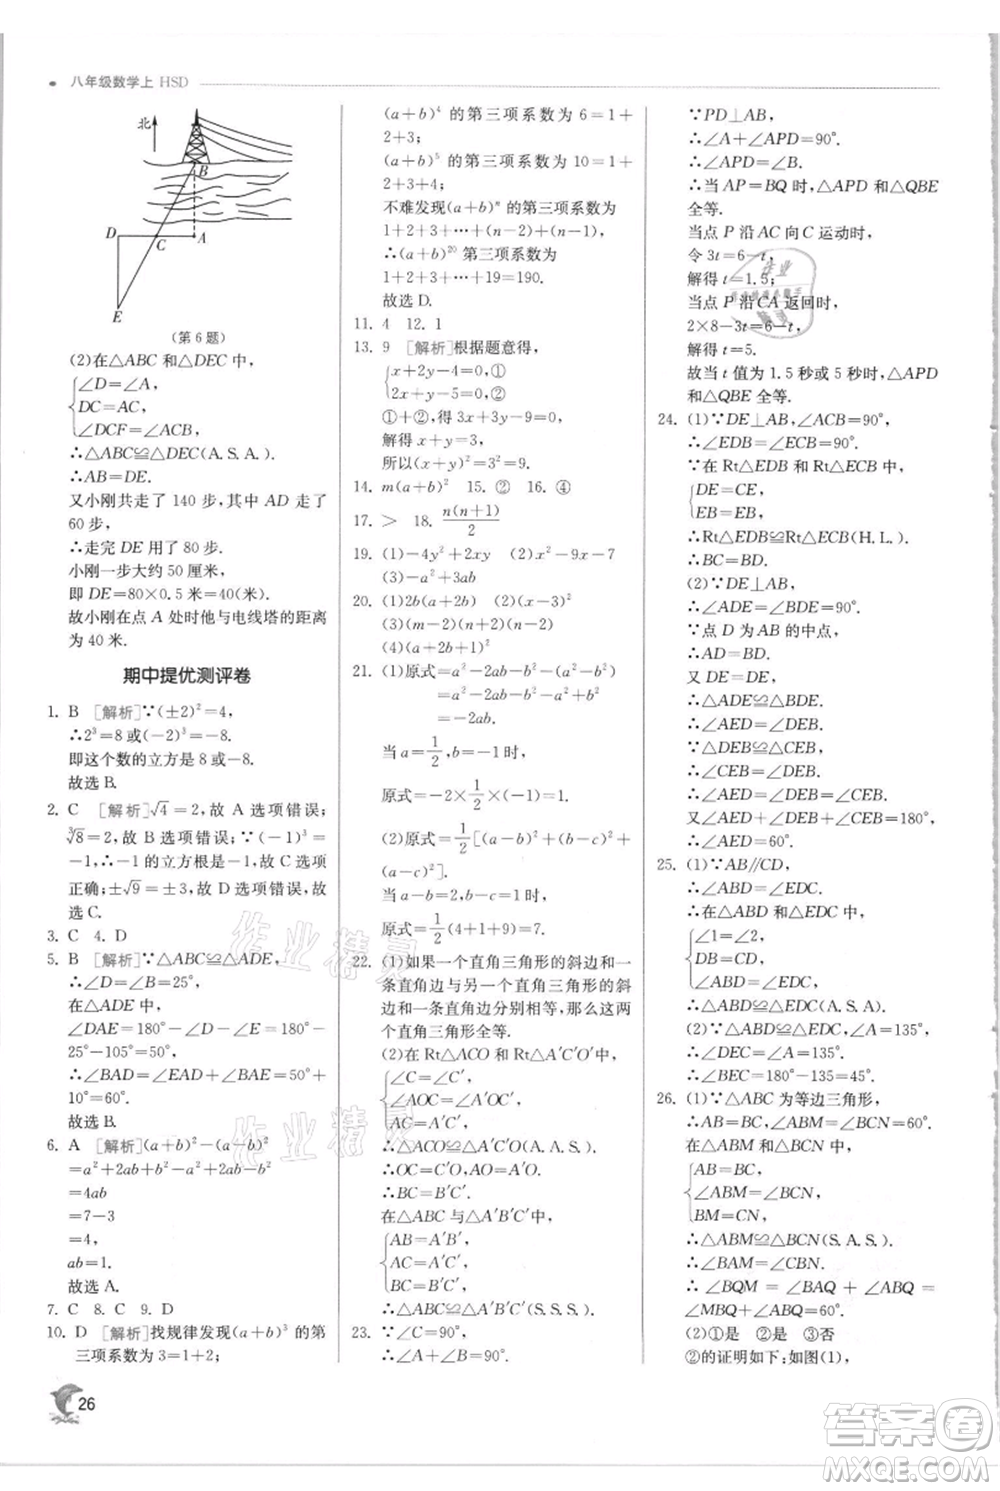 八年级数学上 HSD
北
B
D
C
A
E
(第 6 题)
(2)在△ABC 和△DEC 中,
∠D=∠A,
DC=AC,
∠DCF=∠ACB,
∴△ABC≌△DEC(A. S. A.).
∴AB=DE.
又小刚共走了 140 步,其中 AD 走了
60 步,
∴走完 DE 用了 80 步.
小刚一步大约 50 厘米,
即 DE=80×0.5 米=40(米).
故小刚在点 A 处时他与电线塔的距离
为 40 米.
期中提优测评卷
1. B [解析]∵(±2)²=4,
∴2³=8 或(−2)³=−8.
即这个数的立方是 8 或−8.
故选 B.
2. C [解析]√4=2,故 A 选项错误;
∛8=2,故 B 选项错误;∵(−1)³=
−1,∴−1 的立方根是−1,故 C 选项
正确;±√9=±3,故 D 选项错误,故
选 C.
3. C 4. D
5. B [解析]∵△ABC≌△ADE,
∴∠D=∠B=25°.
在△ADE 中,
∠DAE=180°−∠D−∠E=180°−
25°−105°=50°.
∴∠BAD=∠EAD+∠EAB=50°+
10°=60°.
故选 B.
6. A [解析](a+b)²−(a−b)²
=a²+2ab+b²−a²+2ab−b²
=4ab
=7−3
=4,
ab=1.
故选 A.
7. C 8. C 9. D
10. D [解析]找规律发现(a+b)³ 的第
三项系数为 3=1+2;
(a+b)⁴ 的第三项系数为 6=1+
2+3;
(a+b)⁵ 的第三项系数为 10=1+
2+3+4;
不难发现(a+b)ⁿ 的第三项系数为
1+2+3+⋯+(n−2)+(n−1),
∴(a+b)²⁰ 的第三项系数为
1+2+3+⋯+19=190.
故选 D.
11. 4 12. 1
13. 9 [解析]根据题意得,
x+2y−4=0,①
2x+y−5=0,②
①+②,得 3x+3y=9,
解得 x+y=3,
所以(x+y)²=3²=9.
14. m(a+b)² 15. ② 16. ④
17. > 18. n(n+1)/2
19. (1)−4y²+2xy (2)x²−9x−7
(3)−a²+3ab
20. (1)2b(a+2b) (2)(x−3)²
(3)(m−2)(m+2)(n−2)
(4)(a+2b+1)²
21. (1)原式=a²−2ab−b²−a²+b²
=a²−2ab−b²−a²+b²
=−2ab.
当 a=1/2,b=−1 时,
原式=−2×1/2×(−1)=1.
(2)原式=1/2[(a−b)²+(b−c)²+
(a−c)²].
当 a−b=2,b−c=1 时,
原式=1/2(4+1+9)=7.
22. (1)如果一个直角三角形的斜边和一
条直角边与另一个直角三角形的斜
边和一条直角边分别相等,那么这两
个直角三角形全等.
(2)在 Rt△ACO 和 Rt△A′C′O′中,
∠C=∠C′,
∠AOC=∠A′O′C′,
AC=A′C′,
∴△ACO≌△A′C′O′(A. A. S.).
∴OC=O′C′.
∴BC=B′C′.
在△ABC 与△A′B′C′中,
AB=A′B′,
AC=A′C′,
BC=B′C′,
∴△ABC≌△A′B′C′(S. S. S.).
23. ∵∠C=90°,
∴∠A+∠B=90°.
∵PD⊥AB,
∴∠A+∠APD=90°.
∴∠APD=∠B.
∴当 AP=BQ 时,△APD 和△QBE
全等.
当点 P 沿 AC 向 C 运动时,
令 3t=6−t,
解得 t=1.5.
当点 P 沿 CA 返回时,
2×8−3t=6−t,
解得 t=5.
故当 t 值为 1.5 秒或 5 秒时,△APD
和△QBE 全等.
24. (1)∵DE⊥AB,∠ACB=90°,
∴∠EDB=∠ECB=90°.
∵在 Rt△EDB 和 Rt△ECB 中,
DE=CE,
EB=EB,
∴Rt△EDB≌Rt△ECB(H. L.).
∴BC=BD.
(2)∵DE⊥AB,
∴∠ADE=∠BDE=90°.
∵点 D 为 AB 的中点,
∴AD=BD.
又 DE=DE,
∴△ADE≌△BDE.
∴∠AED=∠DEB.
∵△DEB≌△CEB,
∴∠CEB=∠DEB.
∴∠AED=∠DEB=∠CEB.
又∠AED+∠DEB+∠CEB=180°,
∴∠AED=60°.
25. (1)∵AB//CD,
∴∠ABD=∠EDC.
∴在△ABD 和△EDC 中,
∠1=∠2,
DB=CD,
∠ABD=∠EDC,
∴△ABD≌△EDC(A. S. A.).
(2)∵△ABD≌△EDC,∠A=135°,
∴∠DEC=∠A=135°.
∴∠BEC=180°−135°=45°.
26. (1)∵△ABC 为等边三角形,
∴AB=BC,∠ABM=∠BCN=60°.
在△ABM 和△BCN 中,
AB=BC,
∠ABM=∠BCN,
BM=CN,
∴△ABM≌△BCN(S. A. S.).
∴∠BAM=∠CBN.
∴∠BQM=∠BAQ+∠ABQ=
∠MBQ+∠ABQ=60°.
(2)①是 ②是 ③否
②的证明如下:如图(1),
26
作业精灵
作业精灵
答案卷
MXQE.COM